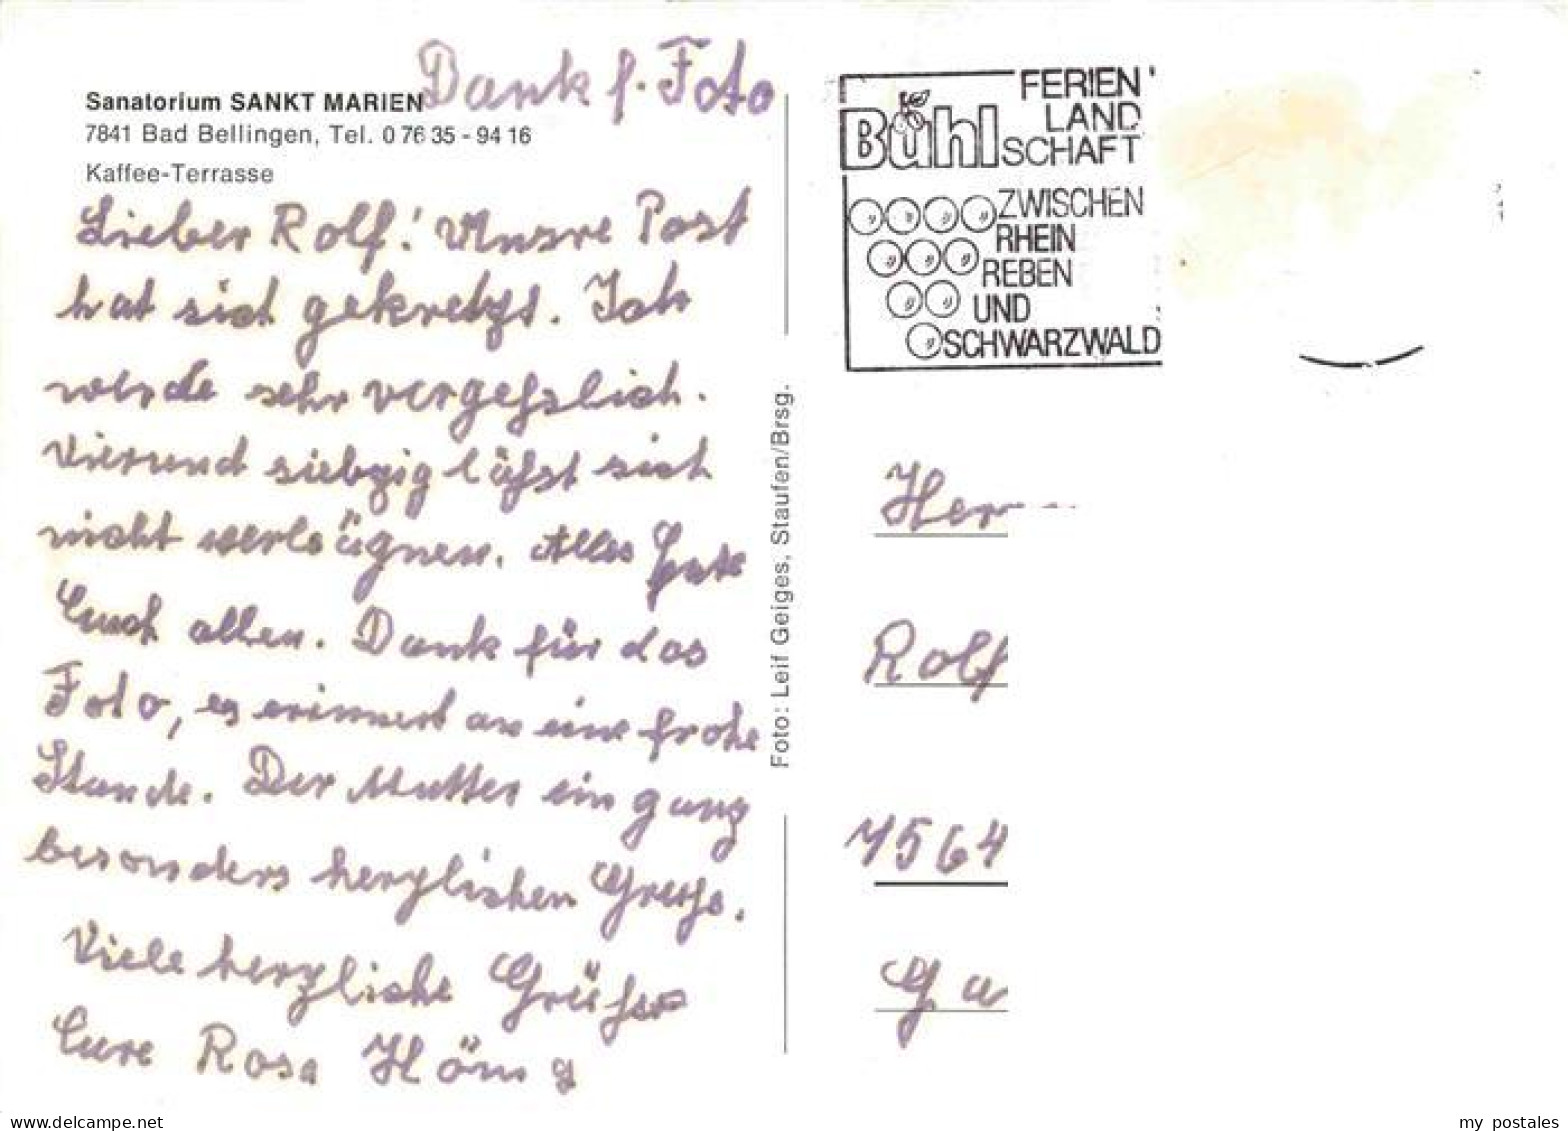 Dank f. Foto
Sanatorium SANKT MARIEN
7841 Bad Bellingen, Tel. 0 76 35 - 94 16
Kaffee-Terrasse
Lieber Rolf! Unsre Post
hat sich gekreuzt. Ich
werde sehr vergeßlich.
Vierund siebzig läßt sich
nicht verleugnen. Alles Gute
Euch allen. Dank für das
Foto, es erinnert an eine frohe
Stunde. Der Mutter ein ganz
besonders herzlichen Gruß.
Viele herzliche Grüße
Eure Rosa
Foto: Leif Geiges, Staufen/Brsg.
Bühl
FERIEN
LAND
SCHAFT
ZWISCHEN
RHEIN
REBEN
UND
SCHWARZWALD
Herr
Rolf
7564
Ga
my postales